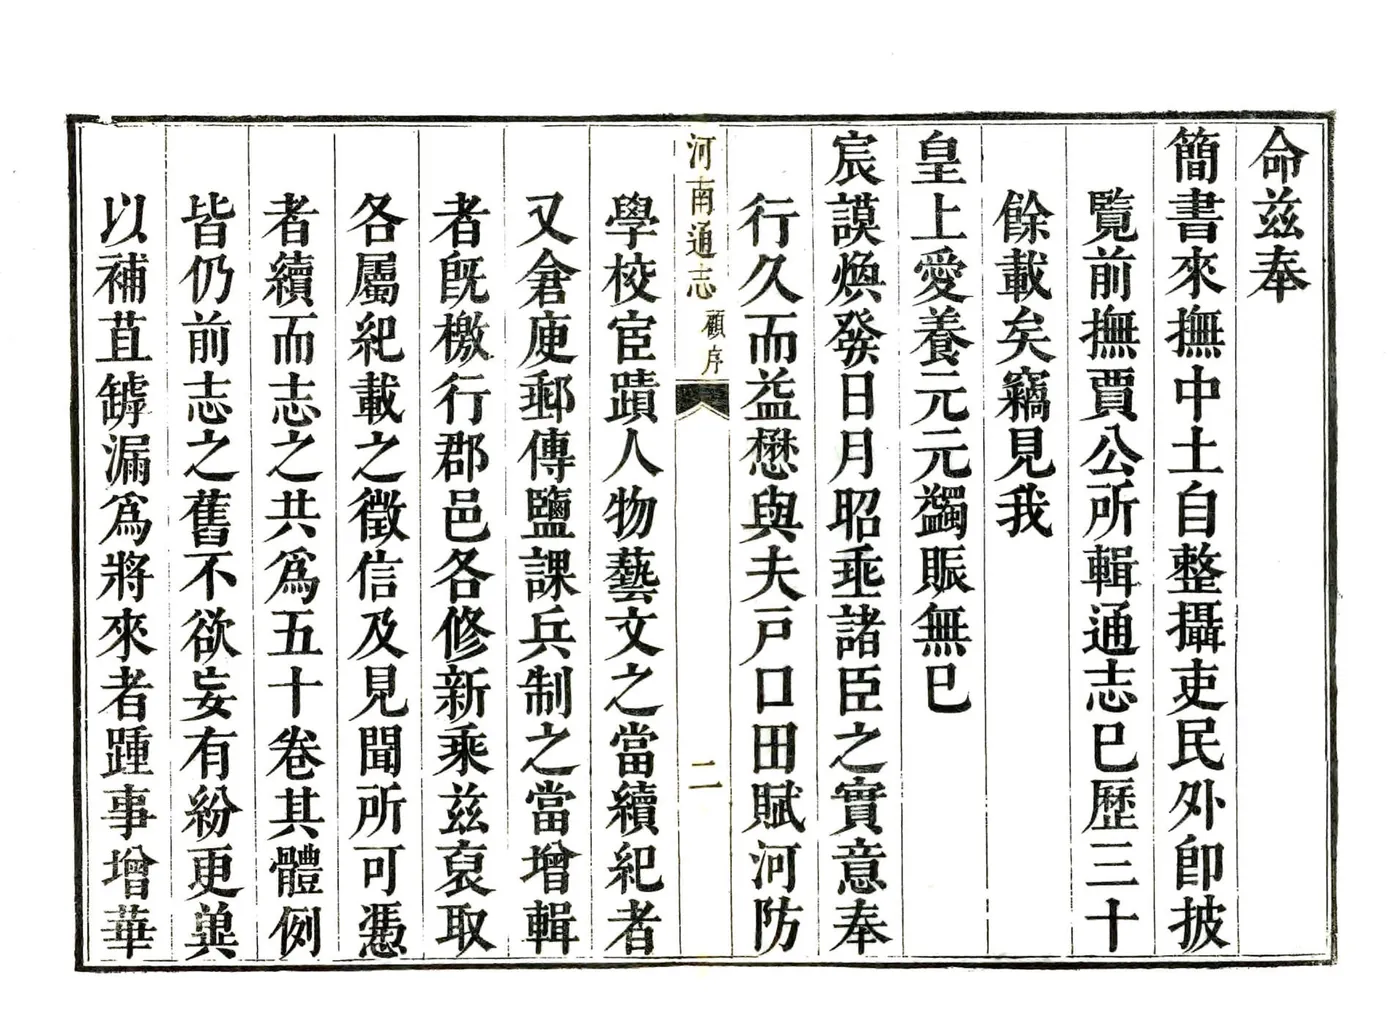 命兹奉
簡書來撫中土自整攝吏民外卽披
覽前撫賈公所輯通志已歷三十
餘載矣竊見我
皇上愛養元元蠲賑無已
宸謨煥發日月昭垂諸臣之實意奉
行久而益懋與夫戸口田賦河防
河南通志 顧序 二
學校宦蹟人物藝文之當續紀者
又倉庾郵傳鹽課兵制之當增輯
者旣檄行郡邑各修新乘兹裒取
各屬紀載之徵信及見聞所可憑
者續而志之共爲五十卷其體例
皆仍前志之舊不欲妄有紛更兾
以補苴罅漏爲將來者踵事增華